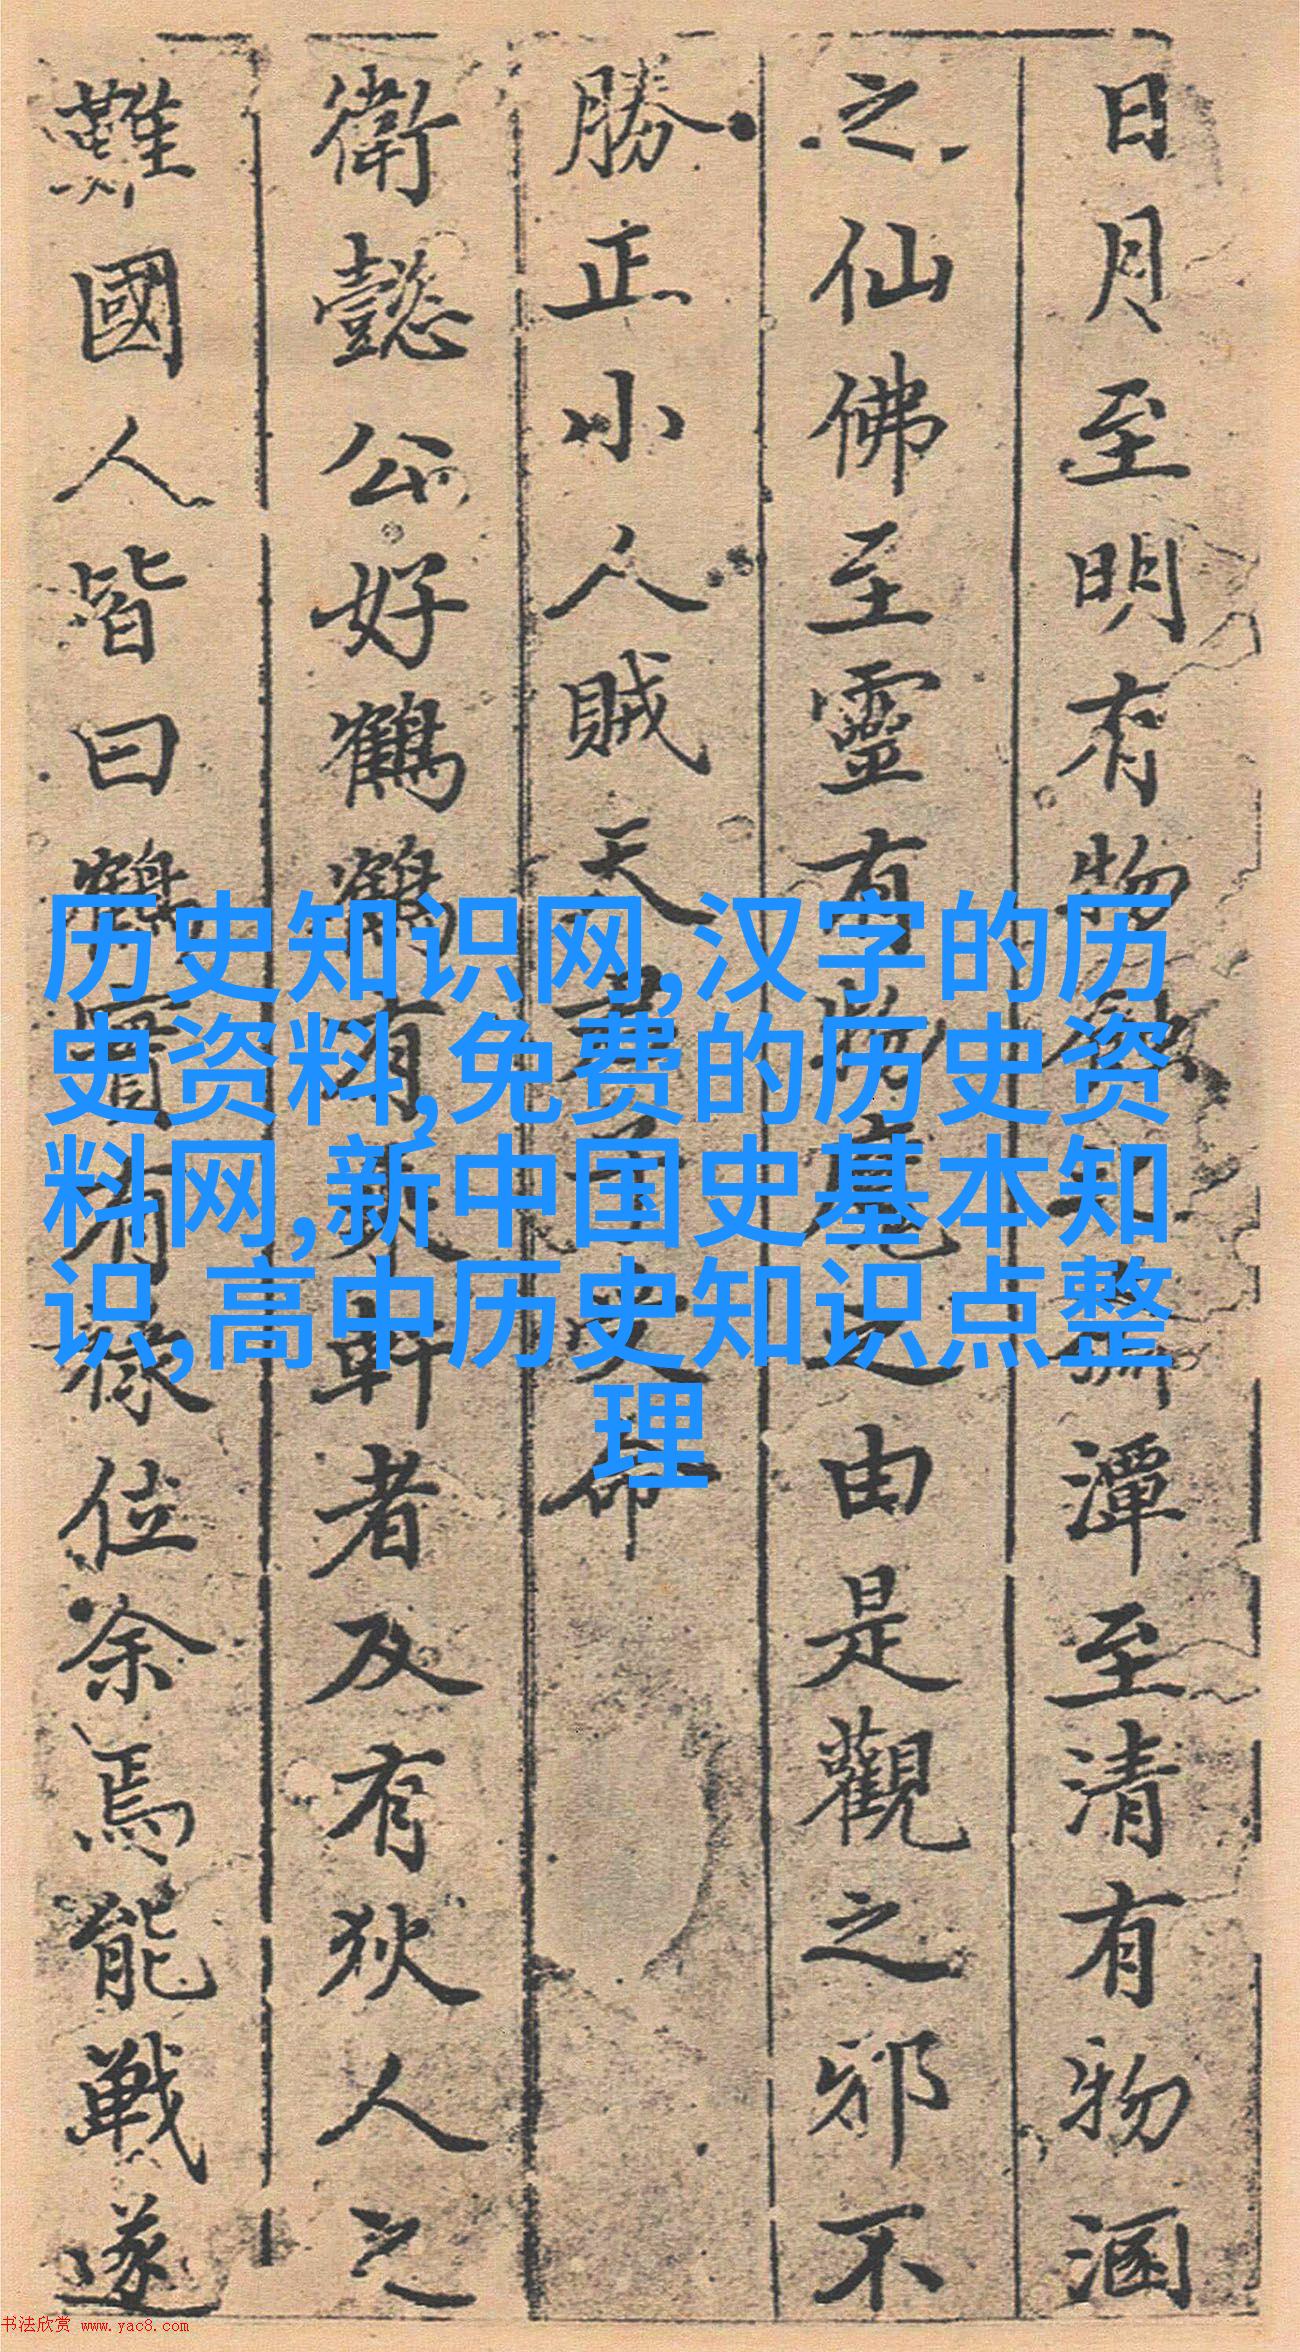 日月至明有物潭至清有物涵
之仙佛至靈有物魔之由是觀之邪不
勝正小人賊天君子命
衛懿公好鶴鶴有乘軒者及有狄人之
難國人皆曰鶴實有祿位余焉能戰遂
历史知识网,汉字的历
史资料,免费的历史资
料网,新中国史基本知
识,高中历史知识点整
理
书法欣赏 www.yac8.com